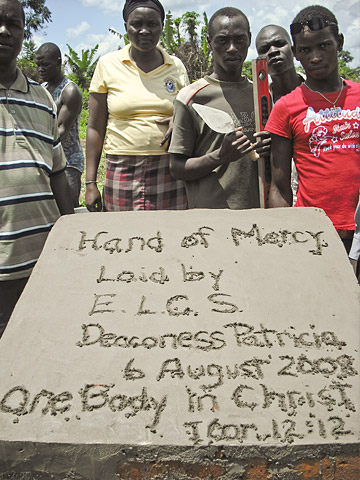 Hand of Mercy
Laid by
E.L.C.S.
Deaconess Patricia
6 August 2008
One Body in Christ
I Cor. 12:12